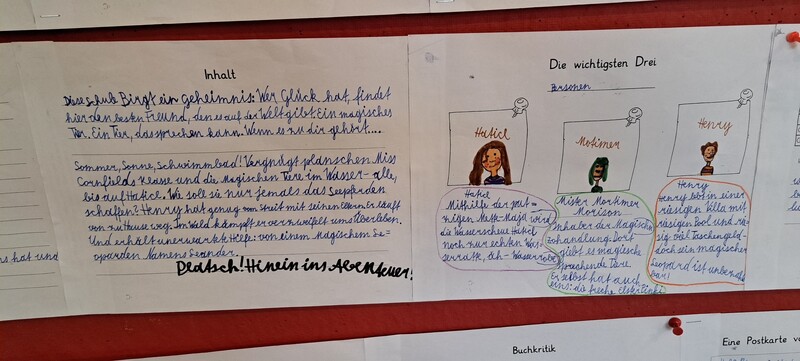 Inhalt
Diese Schule Birgt ein geheimnis: Wer Glück hat, findet
hier den besten Freund, den es auf der Welt gibt: Ein magisches
Tier. Ein Tier, das sprechen kann. Wenn es zu dir gehört...
Sommer, Sonne, Schwimmbad! Vergnügt planschen Miss
Cornfields Klasse und die Magischen Tiere im Wasser - alle,
bis auf Hatice. Wie soll sie nur jemals das Seepferdchen
schaffen? Henry hat genug von Streit mit seinen Eltern Er läuft
von zu Hause weg. Im Wald kämpft er verzweifelt ums Überleben.
Und erhält unerwartete Hilfe: von einem Magischem Le-
oparden Namens Leander.
Platsch! Hinein ins Abenteuer!
Die wichtigsten Drei
Personen
Hatice
Mortimer
Henry
Hatice
Mithilfe der
wird
die Wasserscheue Hatice
noch zur echten Was-
serratte, äh-
Mister Mortimer
Morison
Inhaber der Magische
Zoohandlung. Dort
giebt es magische
sprechende Tiere.
Er selbst hat auch
eins: die freche Elster
Henry
Henry lebt in einer
riesigen Villa mit
riesigen Pool und rie-
sig viel Taschengeld-
doch sein magischer
Leopard ist unbezahl
bar!
hat und
Buchkritik
Eine Postkarte